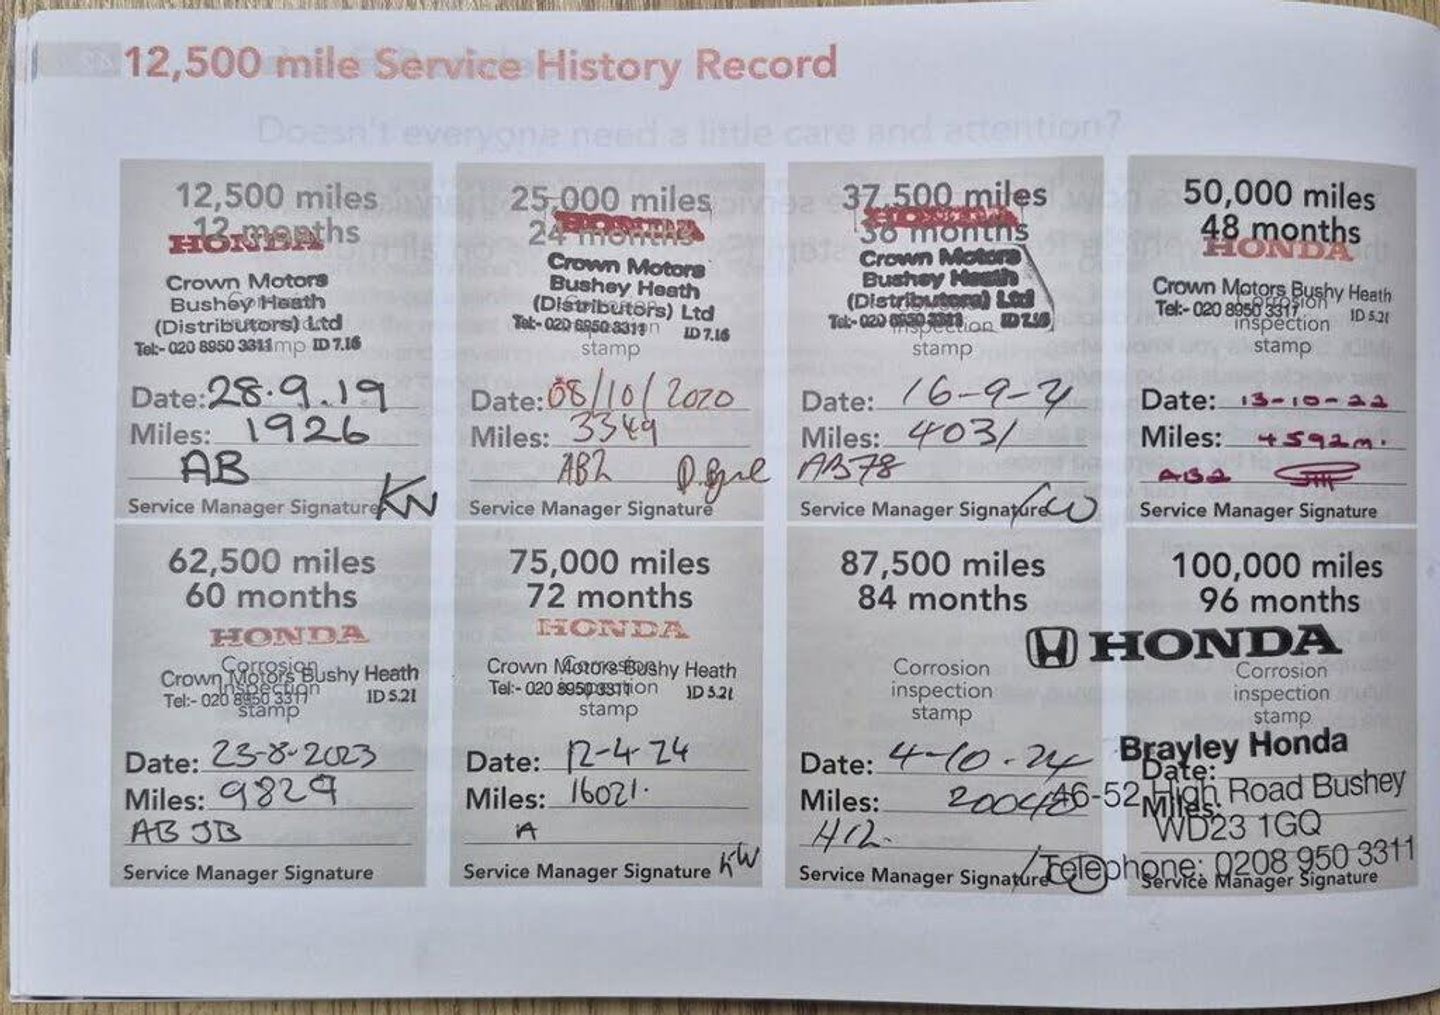 12,500 mile Service History Record
Doesn't everyone need a little care and attention?
12,500 miles
12 months
HONDA
Crown Motors
Bushey Heath
(Distributors) Ltd
Tel:- 020 8950 3311 ID 7.16
Date: 28.9.19
Miles: 1926
AB
Service Manager Signature KW
25,000 miles
24 months
HONDA
Crown Motors
Bushey Heath
(Distributors) Ltd
Tel:- 020 8950 3311 ID 7.16
stamp
Date: 08/10/2020
Miles: 3349
AB2
Service Manager Signature
37,500 miles
36 months
HONDA
Crown Motors
Bushey Heath
(Distributors) Ltd
Tel:- 020 8950 3311 ID 7.16
inspection
stamp
Date: 16-9-21
Miles: 4031
AB78
Service Manager Signature
50,000 miles
48 months
HONDA
Crown Motors Bushy Heath
Corrosion
Tel:- 020 8950 3311 ID 5.21
inspection
stamp
Date: 13-10-22
Miles: 4592m.
AB2
Service Manager Signature
62,500 miles
60 months
HONDA
Corrosion
Crown Motors Bushy Heath
inspection
Tel:- 020 8950 3311 ID 5.21
stamp
Date: 23-8-2023
Miles: 9829
AB JB
Service Manager Signature
75,000 miles
72 months
HONDA
Crown Motors Bushy Heath
Tel:- 020 8950 3311 ID 5.21
stamp
Date: 12-4-24
Miles: 16021.
A
Service Manager Signature KW
87,500 miles
84 months
Corrosion
inspection
stamp
Date: 4-10-24
Miles: 20048
Service Manager Signature
100,000 miles
96 months
HONDA
Corrosion
inspection
stamp
Brayley Honda
Date:
46-52 High Road Bushey
Miles:
WD23 1GQ
Telephone: 0208 950 3311
Service Manager Signature